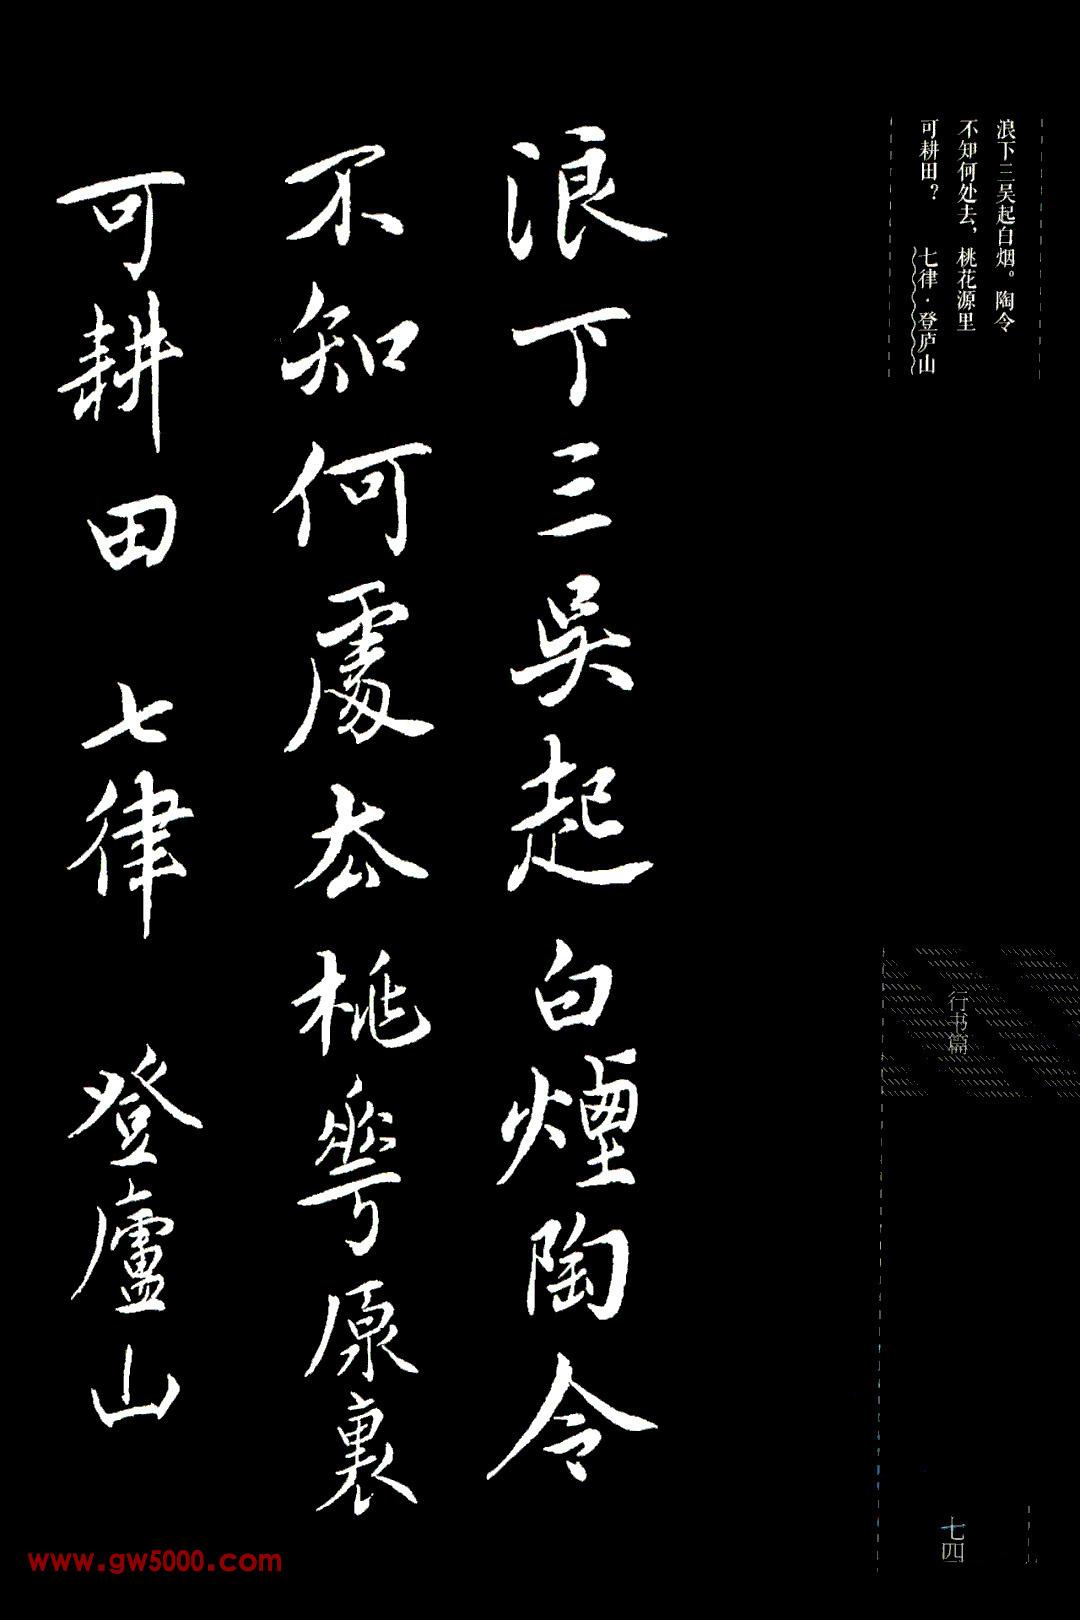 浪下三吴起白烟。陶令
不知何处去，桃花源里
可耕田？ 七律·登庐山
浪下三吳起白煙陶令
不知何處去桃華原裏
可耕田 七律 登廬山
行书篇
七四
www.gw5000.com